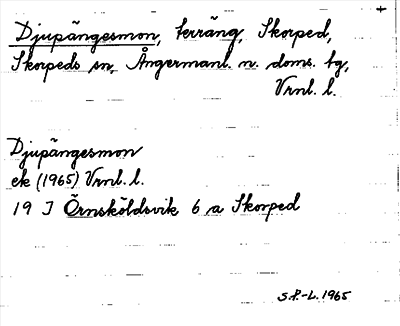 Djupängesmon, terräng, Skorped,
Skorpeds sn, Ångermanl. n. doms. tg,
Vrnl. l.
Djupängesmon
ek (1965) Vrnl. l.
19 J Örnsköldsvik 6 a Skorped
S.P.-L. 1965